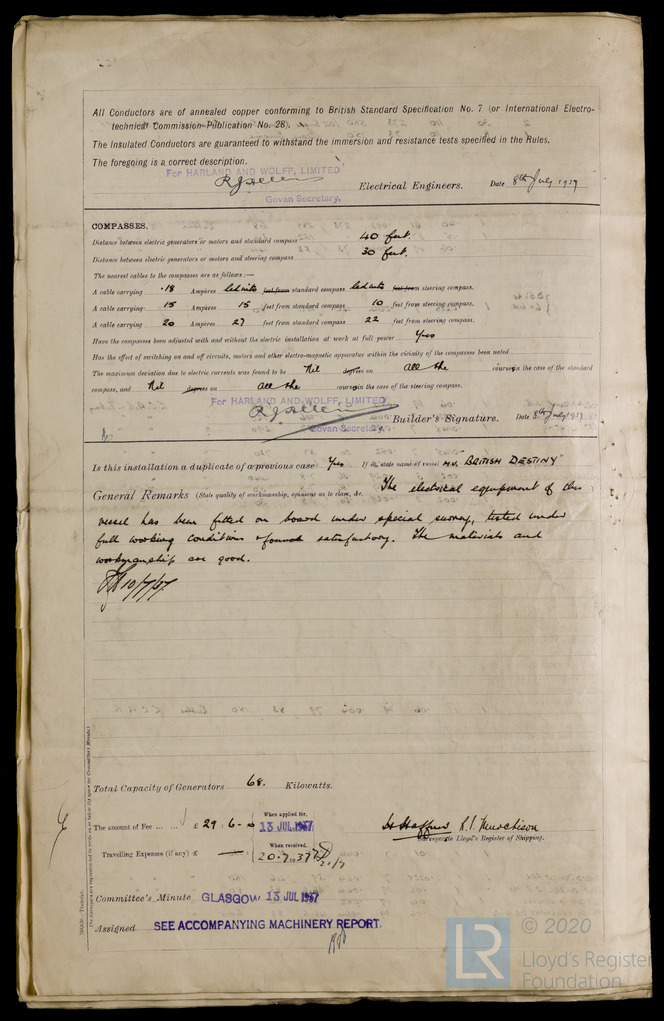 All Conductors are of annealed copper conforming to British Standard Specification No. 7 (or International Electro-
technical Commission Publication No. 28).
The Insulated Conductors are guaranteed to withstand the immersion and resistance tests specified in the Rules.
The foregoing is a correct description.
For HARLAND AND WOLFF, LIMITED
Electrical Engineers. Date 8th July 1937
Govan Secretary.
COMPASSES.
Distance between electric generators or motors and standard compass 40 feet.
Distance between electric generators or motors and steering compass 30 feet.
The nearest cables to the compasses are as follows:—
A cable carrying .18 Ampères led into feet from standard compass led into feet from steering compass.
A cable carrying 15 Ampères 15 feet from standard compass 10 feet from steering compass.
A cable carrying 20 Ampères 27 feet from standard compass 22 feet from steering compass.
Have the compasses been adjusted with and without the electric installation at work at full power Yes
Has the effect of switching on and off circuits, motors and other electro-magnetic apparatus within the vicinity of the compasses been noted
The maximum deviation due to electric currents was found to be Nil degrees on All the courses in the case of the standard
compass, and Nil degrees on All the courses in the case of the steering compass.
For HARLAND AND WOLFF, LIMITED
Builder's Signature. Date 8th July 1937
Govan Secretary.
Is this installation a duplicate of a previous case Yes If so, state name of vessel M.V. BRITISH DESTINY
General Remarks (State quality of workmanship, opinions as to class, &c. The electrical equipment of this
vessel has been fitted on board under special survey, tested under
full working conditions & found satisfactory. The materials and
workmanship are good.
10/7/37
Total Capacity of Generators 68. Kilowatts.
The amount of Fee ... ... £ 29 : 6 - 0
When applied for,
13 JUL 1937
H Haffner R.S. Murchison
Surveyor to Lloyd's Register of Shipping.
Travelling Expenses (if any) £
When received,
20.7.1937
Committee's Minute GLASGOW 13 JUL 1937
Assigned SEE ACCOMPANYING MACHINERY REPORT.
© 2020
LR
Lloyd's Register
Foundation